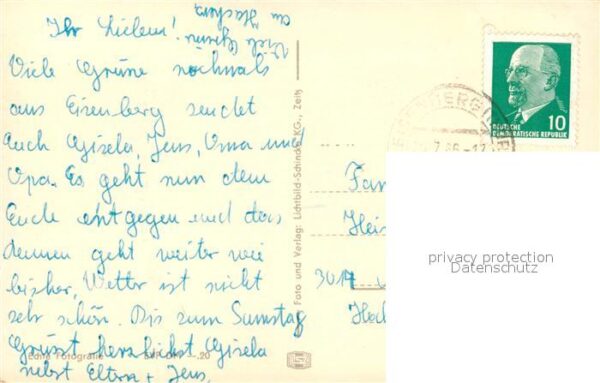 Ihr Lieben!
Viele Grüße
an Hasherz
Viele Grüße nochmals
aus Eisenberg sendet
Euch Gisela, Jens, Oma und
Opa. Es geht nun dem
Ende entgegen und das
dennen geht weiter wie
bisher. Wetter ist nicht
sehr schön. Bis zum Samstag
Grüsst herzlichst Gisela
nebst Eltern + Jens.
Echte Fotografie
20
Foto und Verlag: Lichtbild-Schincke KG., Zeitz
10
DEUTSCHE
DEMOKRATISCHE REPUBLIK
Fam
Heis
3014
Hoch
privacy protection
Datenschutz